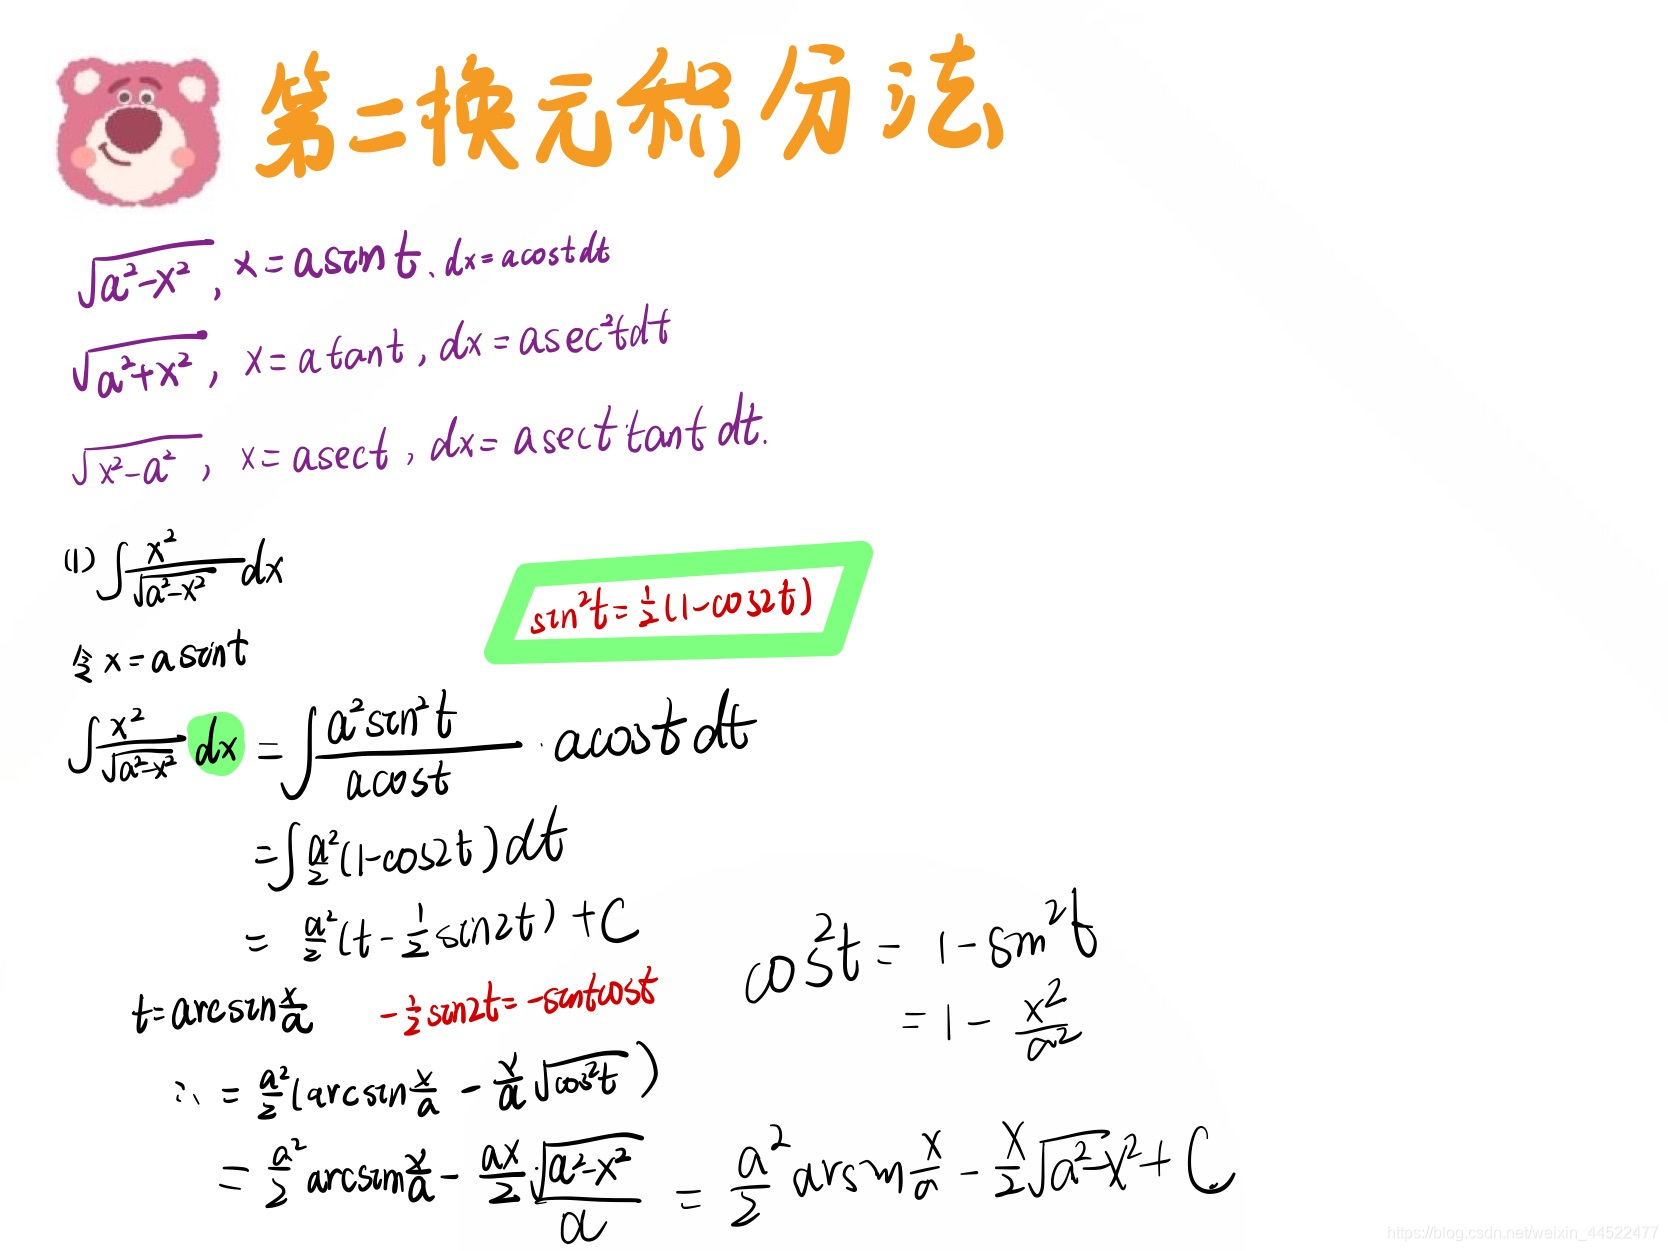 第二换元积分法
√(a²-x²), x=asint、dx=acostdt
√(a²+x²), x=atant, dx=asec²tdt
√(x²-a²), x=asect, dx=asect tant dt.
(1) ∫ x²/√(a²-x²) dx
sin²t=½(1-cos2t)
令 x=asint
∫ x²/√(a²-x²) dx = ∫ a²sin²t/acost · acost dt
=∫ a²/2 (1-cos2t) dt
= a²/2 (t-½sin2t)+C
cos²t = 1-sin²t
t=arcsin x/a
-½sin2t=-sintcost
= 1- x²/a²
∴ = a²/2 (arcsin x/a - x/a √(cos²t))
= a²/2 arcsin x/a - ax/2 √(a²-x²)/a = a²/2 arsin x/a - x/2 √(a²-x²)+C
https://blog.csdn.net/weixin_44522477